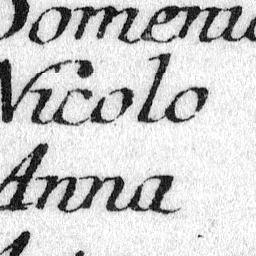 Domeni
Nicolo
Anna